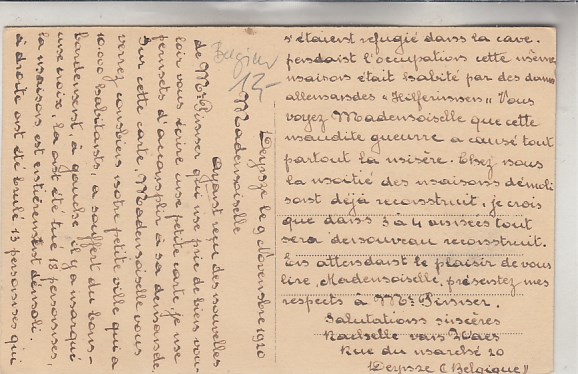 Deynze le 9 Novembre 1920
Mademoiselle
Ayant reçu des nouvelles
de Mr. qui me prie de bien vou-
loir vous écrire une petite carte je me
permets d'accomplir à sa demande.
Sur cette carte, Mademoiselle vous
verrez combien notre petite ville qui a
10,000 habitants, a souffert du bom-
bardement à gauche il y a marqué
une croix, la ont été tué 18 personnes,
la maison est entièrement démoli.
à droite ont été brulé 13 personnes qui
s'étaient refugié dans la cave.
pendant l'occupations cette même
maison était habité par des dames
allemandes "Hilferinnen" Vous
voyez Mademoiselle que cette
maudite gueurre a causé tout
partout la misère. Chez nous
la moitié des maisons démoli
sont déjà reconstruit, je crois
que dans 3 à 4 années tout
sera de nouveau reconstruit.
En attendant le plaisir de vous
lire, Mademoiselle, présentez mes
respects à Mr.
Salutations sincères
Rachelle van Waes
Rue du marché 20
Deynze (Belgique)
Belgien
12-